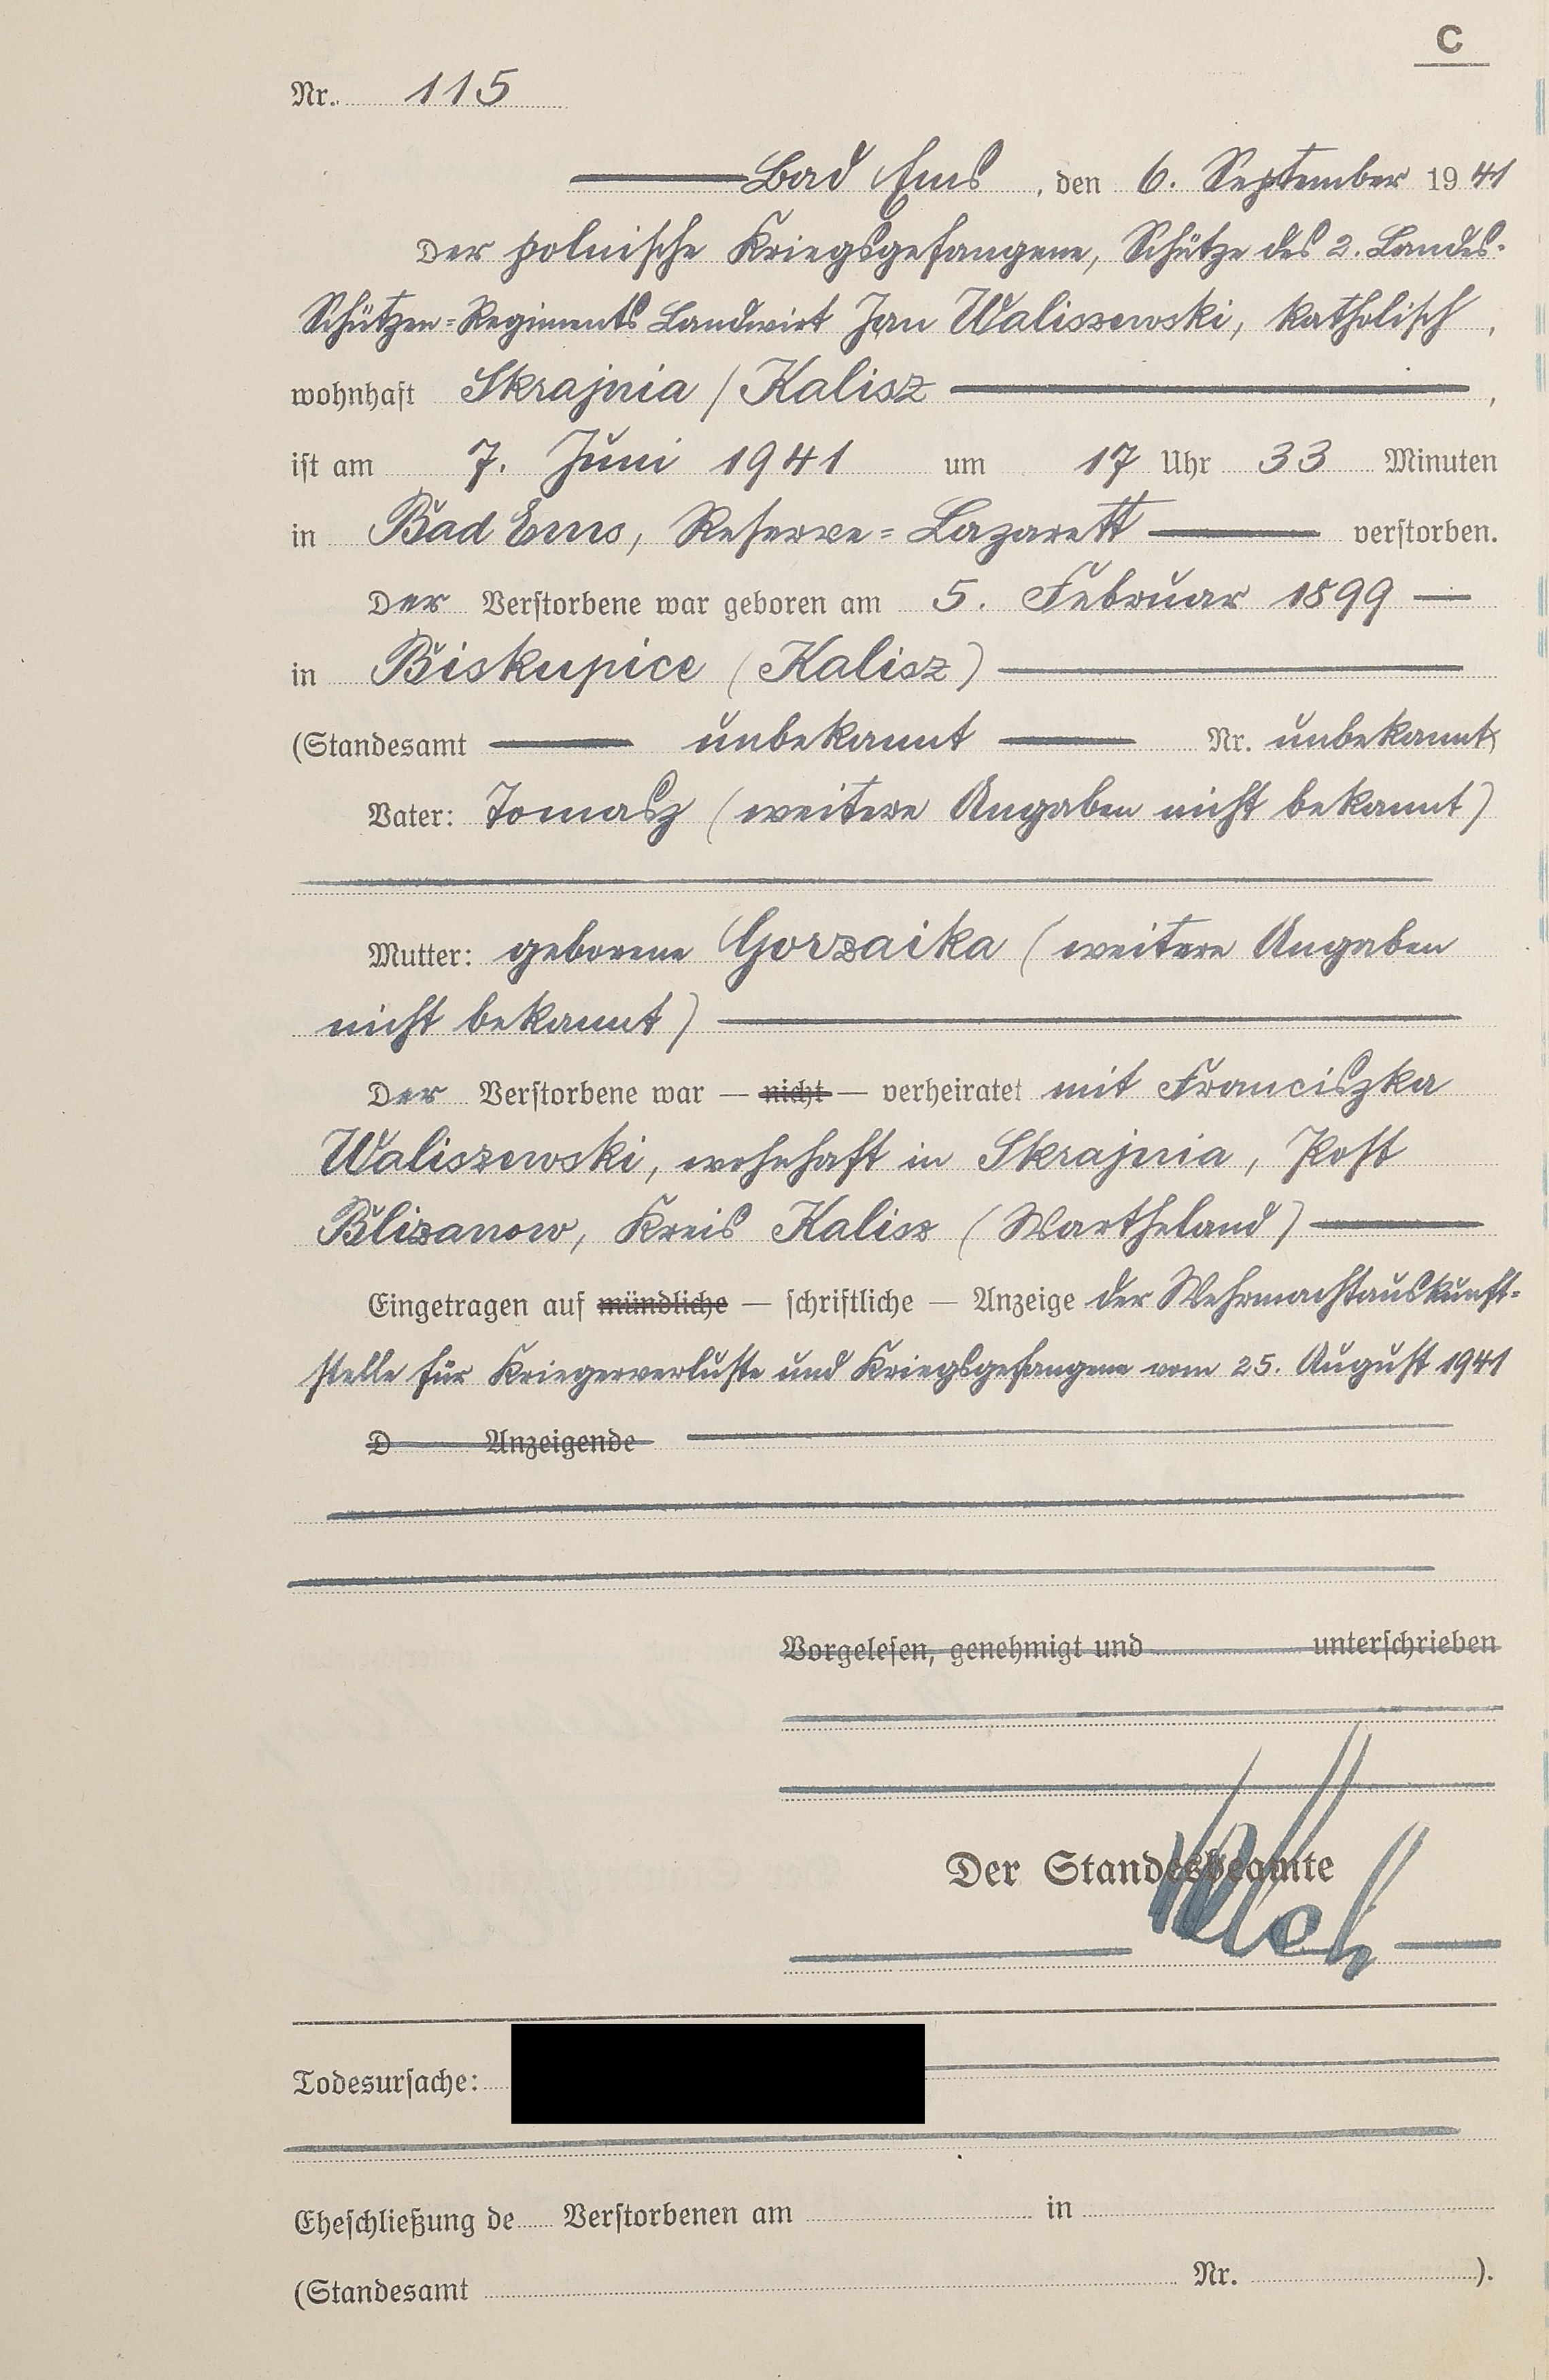 C
Nr. 115
Bad Ems, den 6. September 1941
Der polnische Kriegsgefangene, Schütze des 2. Landes-
Schützen-Regiments Landwirt Jan Waliszewski, katholisch,
wohnhaft Skrajnia / Kalisz,
ist am 7. Juni 1941 um 17 Uhr 33 Minuten
in Bad Ems, Reserve-Lazarett verstorben.
Der Verstorbene war geboren am 5. Februar 1899
in Biskupice (Kalisz)
(Standesamt unbekannt Nr. unbekannt)
Vater: Tomasz (weitere Angaben nicht bekannt)
Mutter: geborene Gorzaika (weitere Angaben
nicht bekannt)
Der Verstorbene war — nicht — verheiratet mit Franciszka
Waliszewski, wohnhaft in Skrajnia, Post
Blizanow, Kreis Kalisz (Wartheland)
Eingetragen auf mündliche — schriftliche — Anzeige der Wehrmachtauskunft-
stelle für Kriegerverluste und Kriegsgefangene vom 25. August 1941
D Anzeigende
Vorgelesen, genehmigt und unterschrieben
Der Standesbeamte
Todesursache:
Eheschließung de Verstorbenen am in
(Standesamt Nr. ).